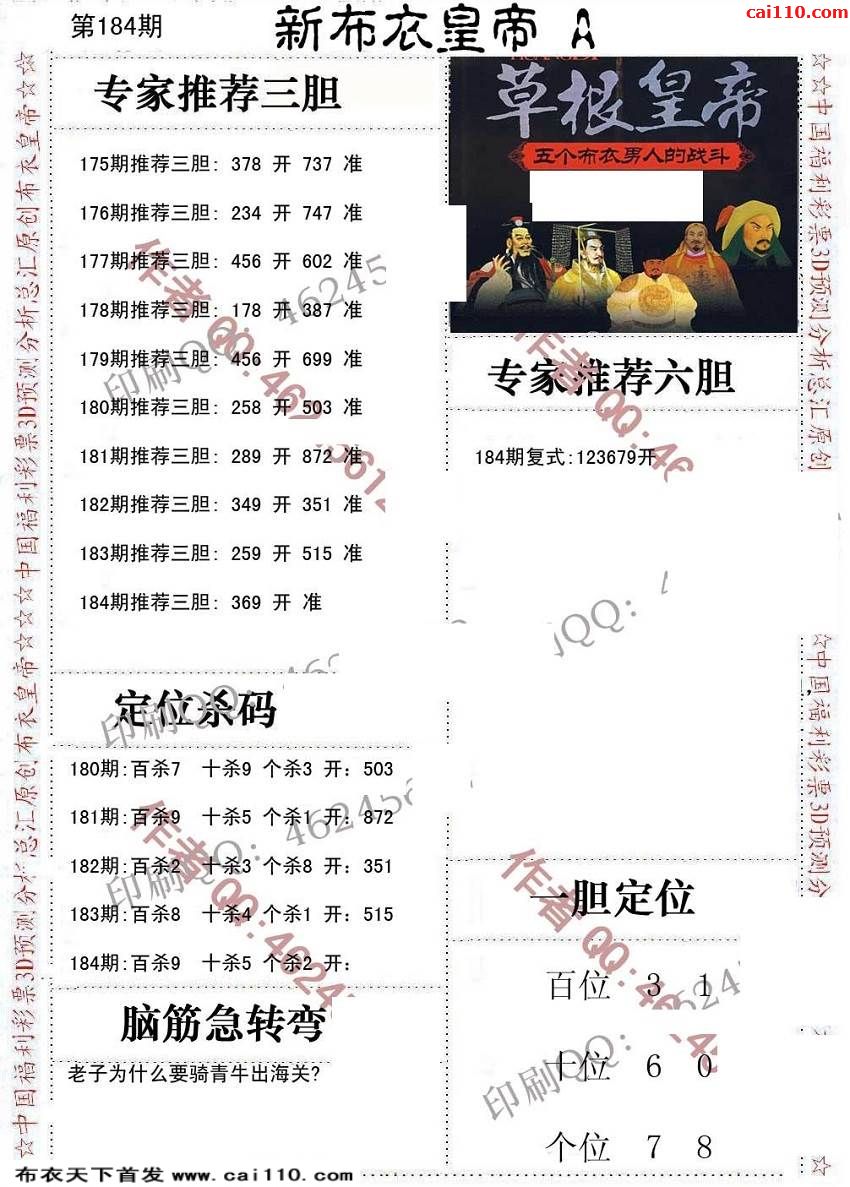 cai110.com
第184期
新布衣皇帝 A
专家推荐三胆
175期推荐三胆: 378 开 737 准
176期推荐三胆: 234 开 747 准
177期推荐三胆: 456 开 602 准
178期推荐三胆: 178 开 387 准
179期推荐三胆: 456 开 699 准
180期推荐三胆: 258 开 503 准
181期推荐三胆: 289 开 872 准
182期推荐三胆: 349 开 351 准
183期推荐三胆: 259 开 515 准
184期推荐三胆: 369 开 准
草根皇帝
五个布衣男人的战斗
专家推荐六胆
184期复式:123679开
定位杀码
180期:百杀7 十杀9 个杀3 开: 503
181期:百杀9 十杀5 个杀1 开: 872
182期:百杀2 十杀3 个杀8 开: 351
183期:百杀8 十杀4 个杀1 开: 515
184期:百杀9 十杀5 个杀2 开:
脑筋急转弯
老子为什么要骑青牛出海关?
一胆定位
百位 3 1
十位 6 0
个位 7 8
布衣天下首发 www.cai110.com
☆中国福利彩票3D预测分析总汇原创布衣皇帝☆☆☆中国福利彩票3D预测分析总汇原创布衣皇帝☆☆
☆☆中国福利彩票3D预测分析总汇原创
☆中国福利彩票3D预测分
☆
作者QQ:469
印刷QQ: 46245
作者QQ:46
印刷QQ:
QQ:
作者QQ:4624
印刷QQ: 462458
作者QQ:4624
印刷QQ: 4624